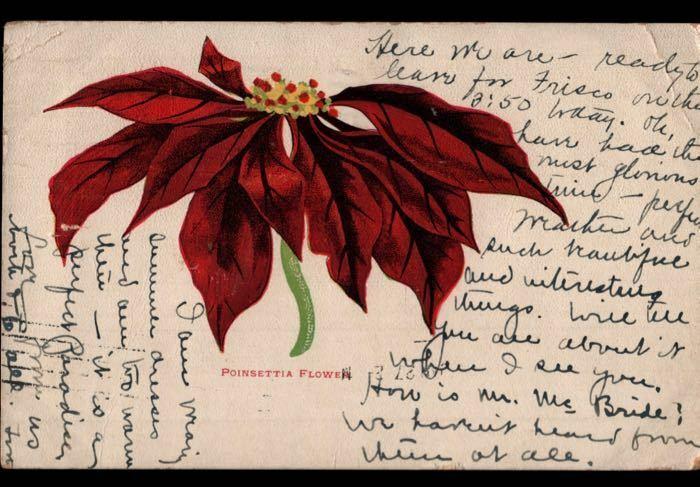 Here we are - ready to
leave for Frisco on the
3:50 today. Oh,
have had the
most glorious
time - perfect
weather and
such beautiful
and interesting
things. Will tell
you all about it
when I see you.
How is Mr. Mc Bride?
We haven't heard from
them at all.
POINSETTIA FLOWER
I am
summer dresses
and am too warm
then - it is a
perfect Paradise.
from us